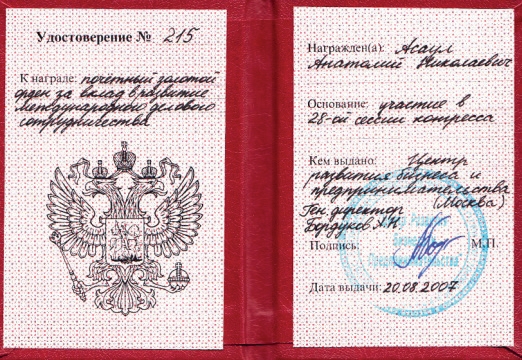 Удостоверение № 215
К награде: почетный золотой
орден за вклад в развитие
международного делового
сотрудничества
Награжден(а): Асаул
Анатолий Николаевич
Основание: участие в
28-ой сессии конгресса
Кем выдано: Центр
развития бизнеса и
предпринимательства
(Москва)
Ген директор
Бердуков Х.К.
Подпись:
М.П.
Дата выдачи: 20.08.2007